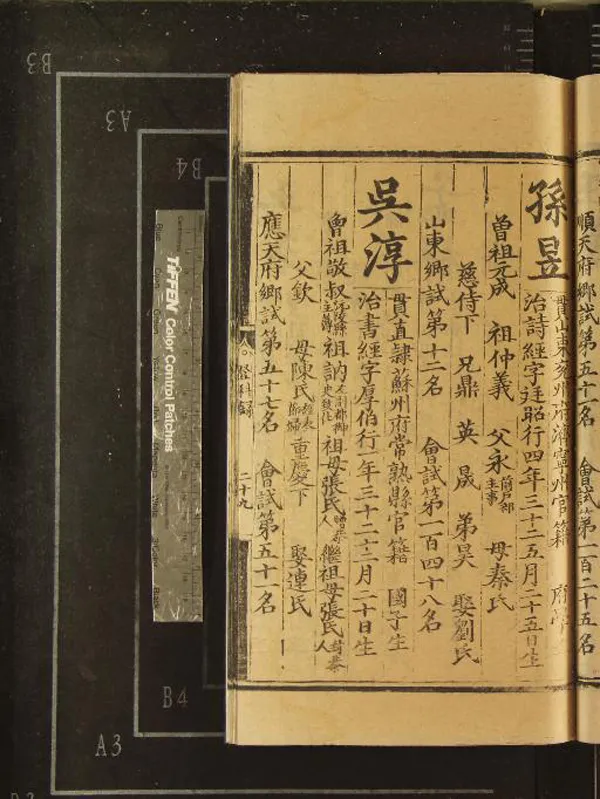 順天府鄉試第五十一名 會試第一百二十五名
孫昱
貫山東兗州府濟寧州官籍 府學
治詩經字廷昭行四年三十二五月二十五日生
曾祖元成 祖仲義 父永前戶部主事 母秦氏
慈侍下 兄鼎 英 晟 弟昊 娶劉氏
山東鄉試第十二名 會試第一百四十八名
吳淳
貫直隸蘇州府常熟縣官籍 國子生
治書經字厚伯行一年三十二十二月二十日生
曾祖敬叔主簿 祖訥左副都御史 祖母張氏 繼祖母張氏封恭人
父欽 母陳氏 重慶下 娶連氏
應天府鄉試第五十七名 會試第五十一名
登科錄
二十九
B3
A3
B4
TIFFEN Color Control Patches
B4
A3